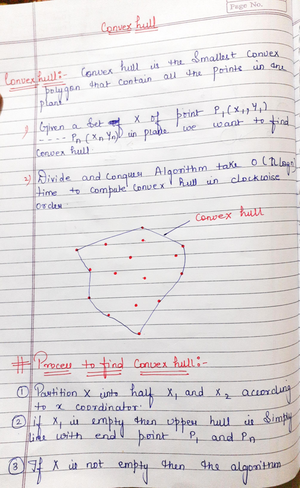 Page No.
Convex hull
Convex hull:- Convex hull is the Smallest Convex
polygon that contain all the points in the
plane
1) Given a Set X of point P1(x1, y1)
----- Pn(xn yn) in plane we want to find
Convex hull
2) Divide and Conquer Algorithm take O(n log n)
time to compute Convex hull in clockwise
order
Convex hull
# Process to find Convex hull:-
① Partition X into half X1 and X2 according
to x coordinator.
② if X1 is empty then upper hull is Simply
line with end point P1 and Pn
③ If X is not empty then the algorithm